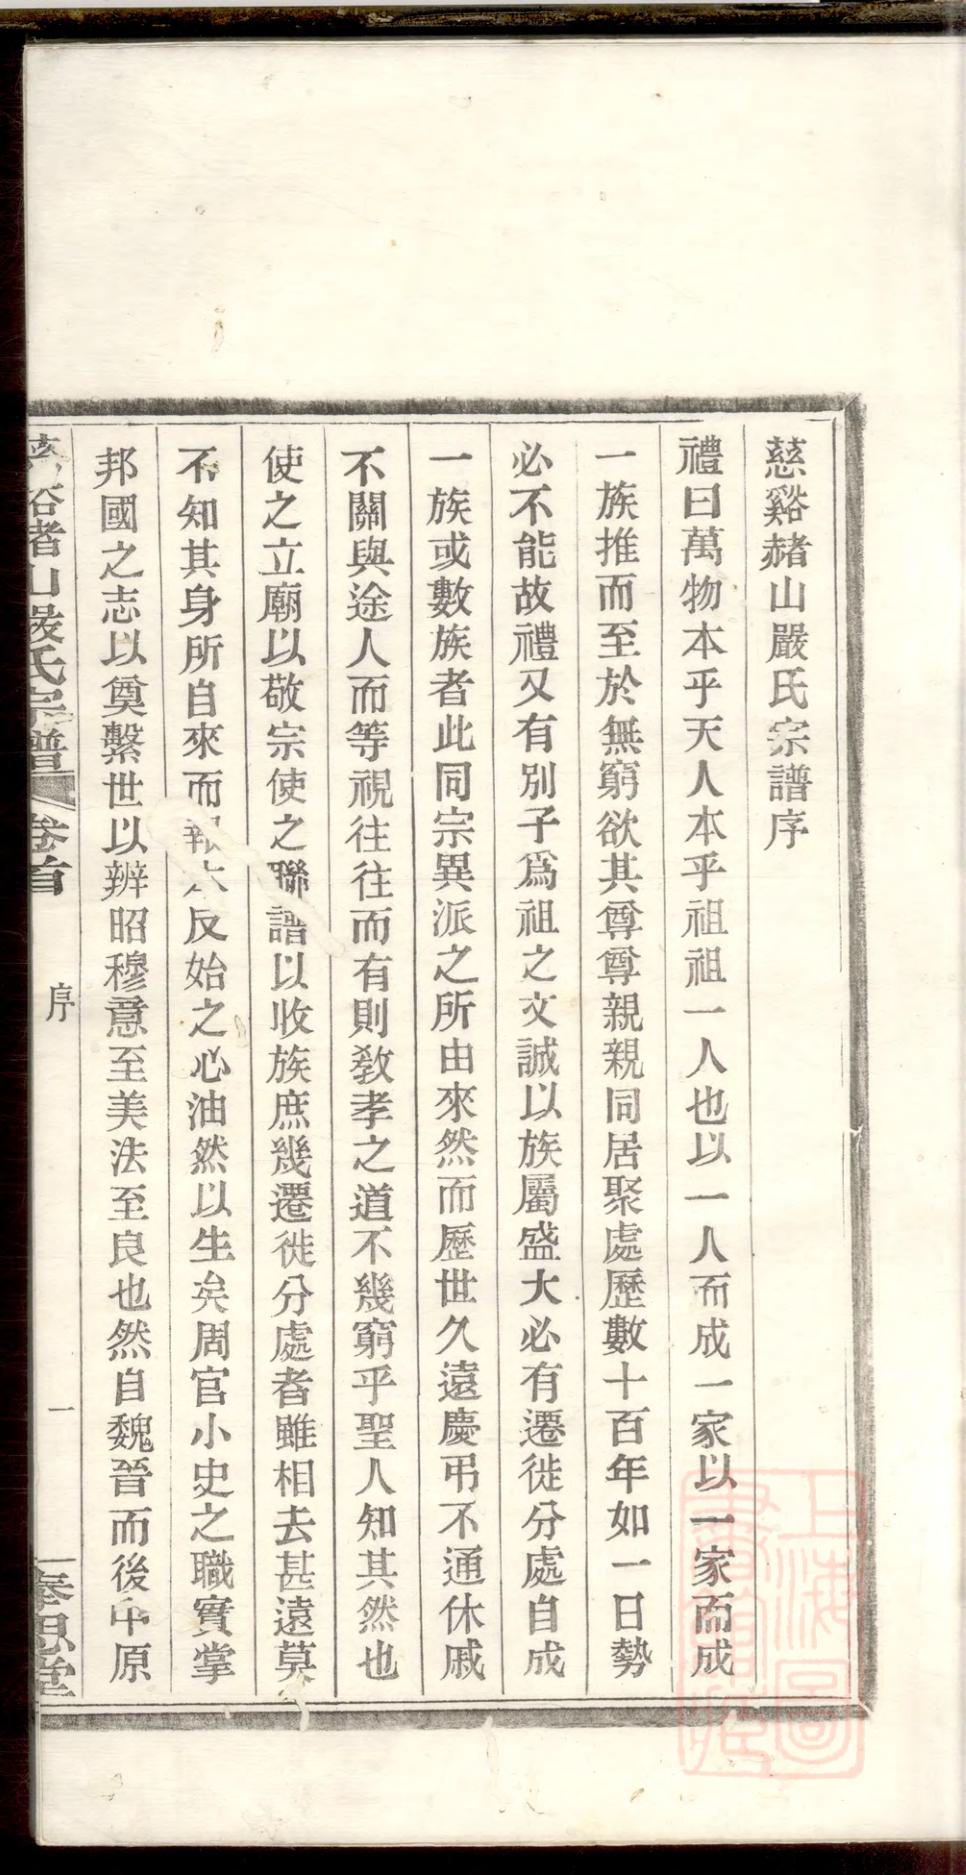 慈谿赭山嚴氏宗譜序
禮曰萬物本乎天人本乎祖祖一人也以一人而成一家以一家而成
一族推而至於無窮欲其尊尊親親同居聚處歷數十百年如一日勢
必不能故禮又有別子爲祖之文誠以族屬盛大必有遷徙分處自成
一族或數族者此同宗異派之所由來然而歷世久遠慶弔不通休戚
不關與途人而等視往往而有則敎孝之道不幾窮乎聖人知其然也
使之立廟以敬宗使之聯譜以收族庶幾遷徙分處者雖相去甚遠莫
不知其身所自來而報本反始之心油然以生矣周官小史之職實掌
邦國之志以奠繫世以辨昭穆意至美法至良也然自魏晉而後中原
慈谿赭山嚴氏宗譜 卷首 序 一
上海圖書館藏